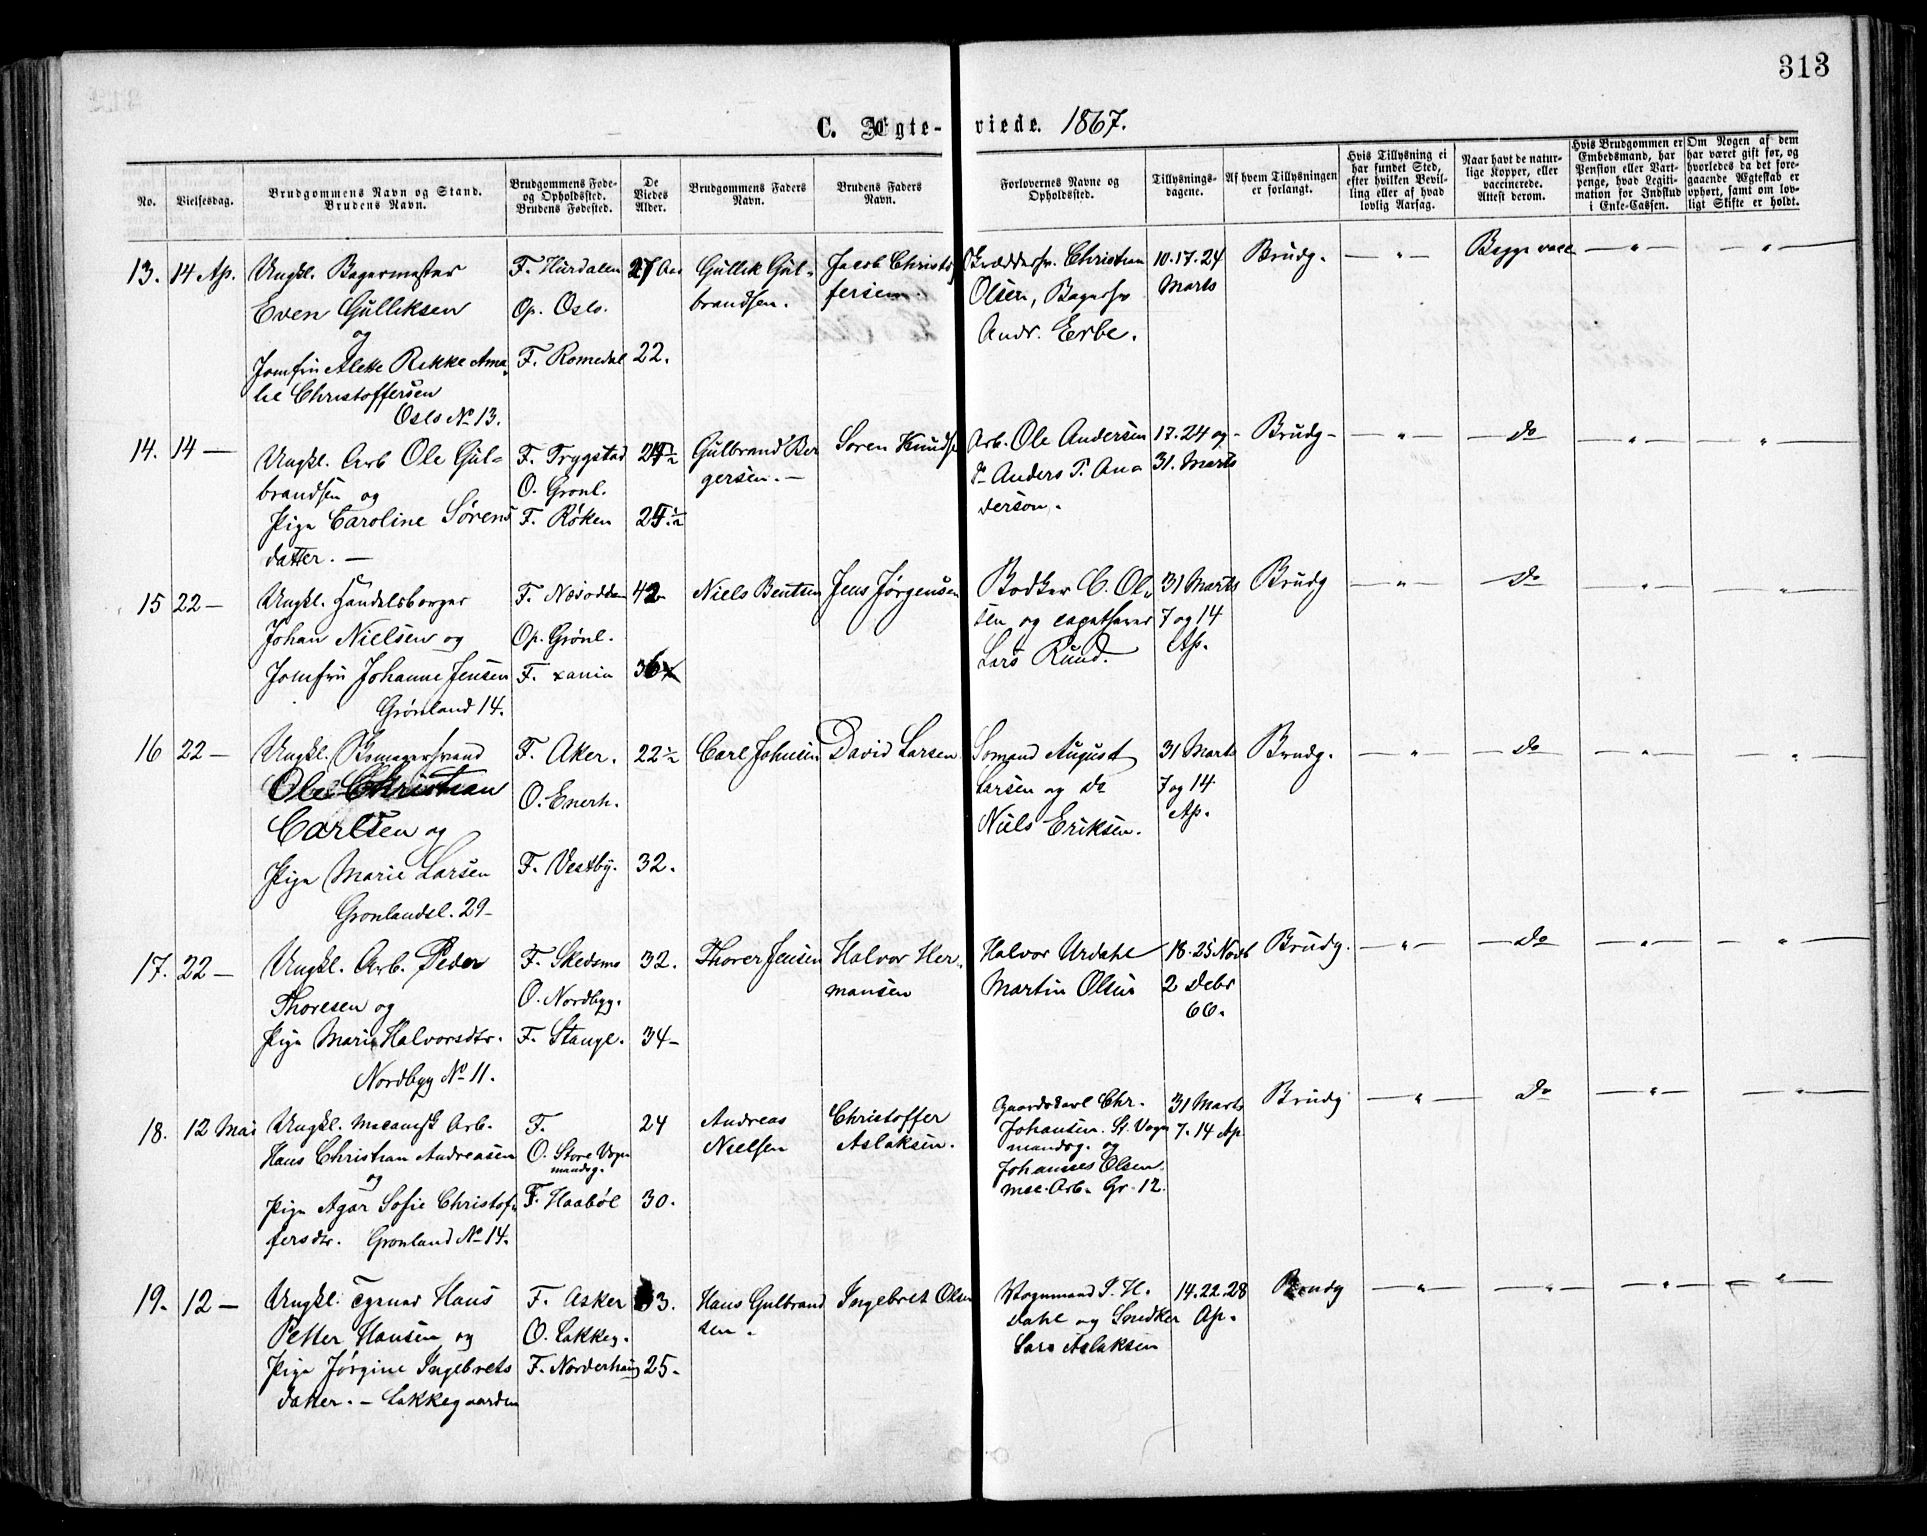 313
C. Ægte- viede. 1867.
No.
Vielsesdag.
Brudgommens Navn og Stand.
Brudens Navn.
Brudgommens Føde-
og Opholdssted.
Brudens Fødested.
De
Viedes
Alder.
Brudgommens Faders
Navn.
Brudens Faders
Navn.
Forlovernes Navne og
Opholdssted.
Tillysnings-
dagene.
Af hvem Tillysningen
er forlangt.
Hvis Tillysning ei
har fundet Sted,
efter hvilken Bevil-
ling eller af hvad
lovlig Aarsag.
Naar havt de natur-
lige Kopper, eller
vaccinerede.
Attest derom.
Hvis Brudgommen er
Embedsmand, har
Pension eller Vart-
penge, hvad Legiti-
mation for Indskud
i Enke-Cassen.
Om Nogen af dem
har været gift før, og
hvorledes da det fore-
gaaende Ægteskab er
ophørt, samt om lov-
ligt Skifte er holdt.
13. 14 Ap. Ungkl. Bagermester F. Hurdalen 27 Aar Gullik Gul- Jacob Christof Christian 10.17.24 Brudg. — " — Begge vacc — " — — " —
Even Gulliksen Op. Oslo. brandsen. fersen. Olsen, Bagersv Marts
og Andr. Eerbe.
Jomfru Alette Rikke Ama- F. Romedal 22.
lie Christoffersen
Oslo No 13.
14. 14 — Ungkl. Arb Ole Gul- F. Trygstad 24½ Gulbrand Bir Soren Knuds Arb. Ole Andersen 17.24 og Brudg — " — do — " — "
brandsen og O. Gronl. gersen. — Anders P. An 31. Marts
Pige Caroline Sørens F. Røken 25½ derson.
datter. —
15 22 — Ungkl. Handelsborger F. Næsodden 42 Niels Bentsen Jens Jørgensen Bodker C. Ol 31 Marts Brudg — " — do — " — — " —
Johan Nielsen og Op. Grønl. sen og 7 og 14
Jomfru Johanne Jensen F. xania 36 Lars Rund. Ap.
Grønland 14.
16 22 — Ungkl. F. Aker. 22½ Carl Johnsen David Larsen Somand August 31 Marts Brudg. — " — do — " — "
Ole Christian O. Enerh. Larsen og do 7 og 14
Carlsen og Niels Eriksen. Ap.
Pige Marie Larsen F. Vestby. 32.
Gronlandsl. 29 —
17. 22 — Ungkl. Arb. Peder F. Skedsmo 32. Thorer Jensen Halvor Her- Halvor Urdahl 18.25 Novb Brudg. — " — do — " — "
Thoresen og O. Nordbyg. mansen Martin Olsen 2 Debr
Pige Marie Halvorsdtr. F. Stange. 34 — 66.
Nordbyg No 11.
18. 12 Mai Ungkl. mecanisk Arb. F. 24 Andreas Christoffer Gaardskarl Chr. 31 Marts Brudg — " — do — " — "
Hans Christian Andreasen O. Store Vogn Nielsen Aslaksen. Johansen. St. Vogn 7.14 Ap.
og mandsg. mandsg. og
Pige Agar Sofie Christof- F. Haabøl 30. Johannes Olsen.
fersdtr. Gronland No 14. mec. Arb. Gr. 12.
19. 12 — Ungkl. Hans F. Asker 33. Hans Gulbrand Ingebret Olsen Vognmand P. H. 14.22.28 Brudg — " — — " — — " — — " —
Petter Hansen og O. Lakkeg. sen. dahl og Snedker Ap.
Pige Jørgine Ingebrets F. Norderhaug 25 — Lars Aslaksen
datter. — Lakkegaarden